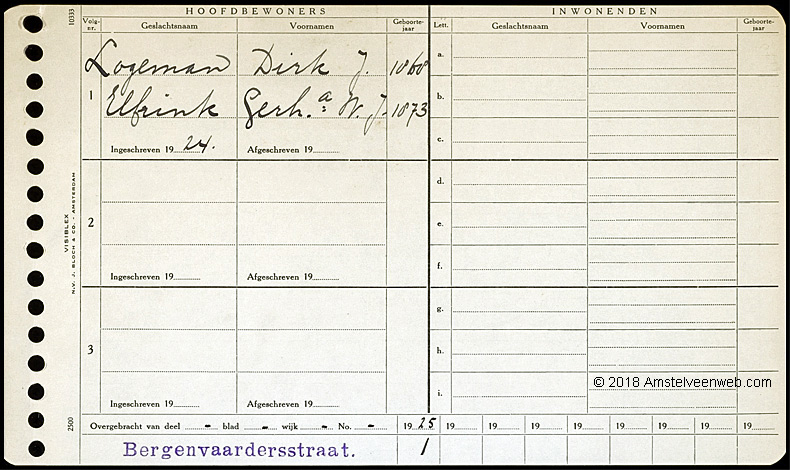 HOOFDBEWONERS INWONENDEN
Volg-nr. Geslachtsnaam Voornamen Geboorte-jaar Lett. Geslachtsnaam Voornamen Geboorte-jaar
10333
Logeman Dirk J. 1868 a.
1 Elfrink Gerh.a W. J. 1873 b.
c.
Ingeschreven 19 24. Afgeschreven 19
d.
2 e.
f.
Ingeschreven 19 Afgeschreven 19
g.
3 h.
i.
Ingeschreven 19 Afgeschreven 19
VISIBLEX
N.V. J. BLOCH & CO. - AMSTERDAM
2500
© 2018 Amstelveenweb.com
Overgebracht van deel - blad - wijk - No. - 19 25 19 19 19 19 19 19 19 19
Bergenvaardersstraat. 1